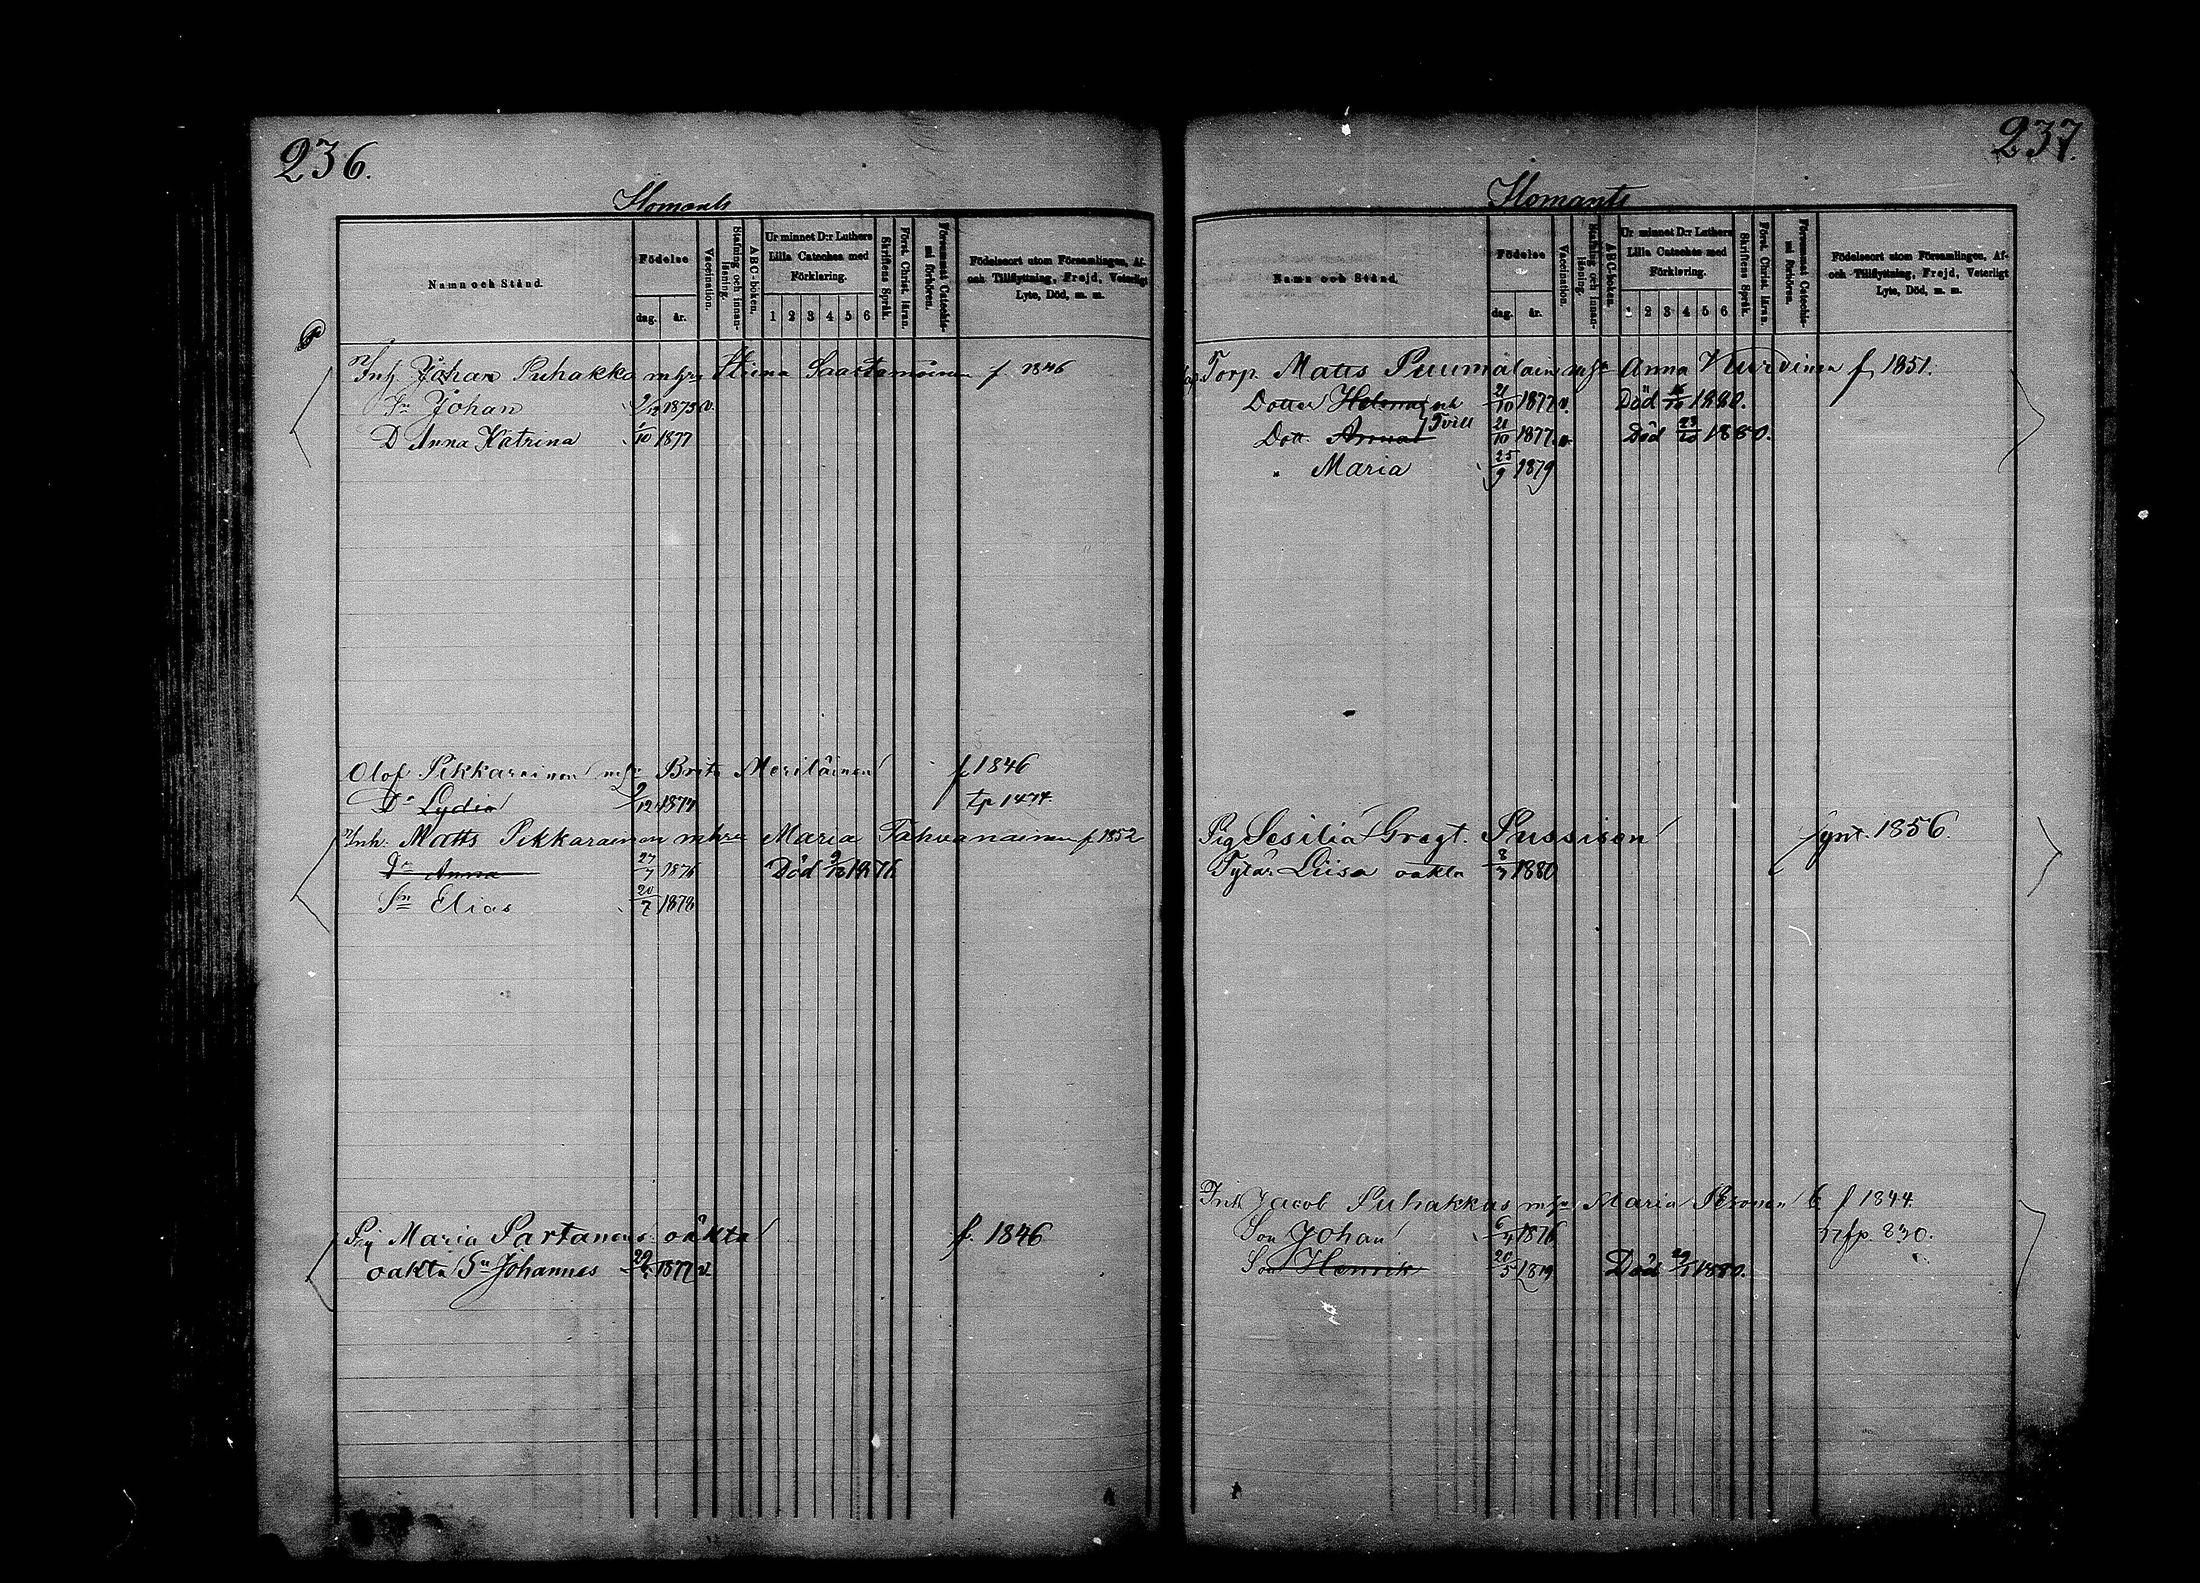 236.
Homants
Namn och Stånd.
Födelse
dag. år.
Vaccination.
Stafning och innan-läsning.
ABC-boken.
Ur minnet D:r Luthers Lilla Cateches med Förklaring.
1 2 3 4 5 6
Skriftens Språk.
Först. Christ. läran.
Försummat Catechis-mi förhören.
Födelseort utom Församlingen, Af- och Tillflyttning, Frejd, Veterligt Lyte, Död, m. m.
Inh Johan Puhakka m hru Stiina Saastamoinen f 1846
Sn Johan 9/12 1875 v.
D Anna Katrina 1/10 1877
Olof Pikkarainen m hr Brita Meriläinen f 1846
Dr Lydia 9/12 1877 tp 1477.
Inh. Matts Pikkarainen m hru Maria Tahvanainen f 1852
Dr Anna 27/7 1876 Död 9/12 1876
Sn Elias 20/7 1878
Pig Maria Partanen oäkta f. 1846
oäkta Sn Johannes 1877 v.
237.
Homants
Namn och Stånd.
Födelse
dag. år.
Vaccination.
Stafning och innan-läsning.
ABC-boken.
Ur minnet D:r Luthers Lilla Cateches med Förklaring.
2 3 4 5 6
Skriftens Språk.
Först. Christ. läran.
Försummat Catechis-mi förhören.
Födelseort utom Församlingen, Af- och Tillflyttning, Frejd, Veterligt Lyte, Död, m. m.
Torp. Matts Puumalain m hr Anna Kurvinen f 1851.
Dotter Helena och 21/10 1877 v. Död 1880.
Dott. Anna Tvill 21/10 1877 v. Död 23/10 1880.
" Maria 25/9 1879
Pig Sesilia Gregt. Pussisen synt. 1856.
Tytär Liisa oäkta 8/7 1880
Inh Jacob Puhakkas m hr Maria Peronen f 1844.
Son Johan 6/4 1876 nfp. 830.
Son Henrik 20/5 1879 Död 1880.